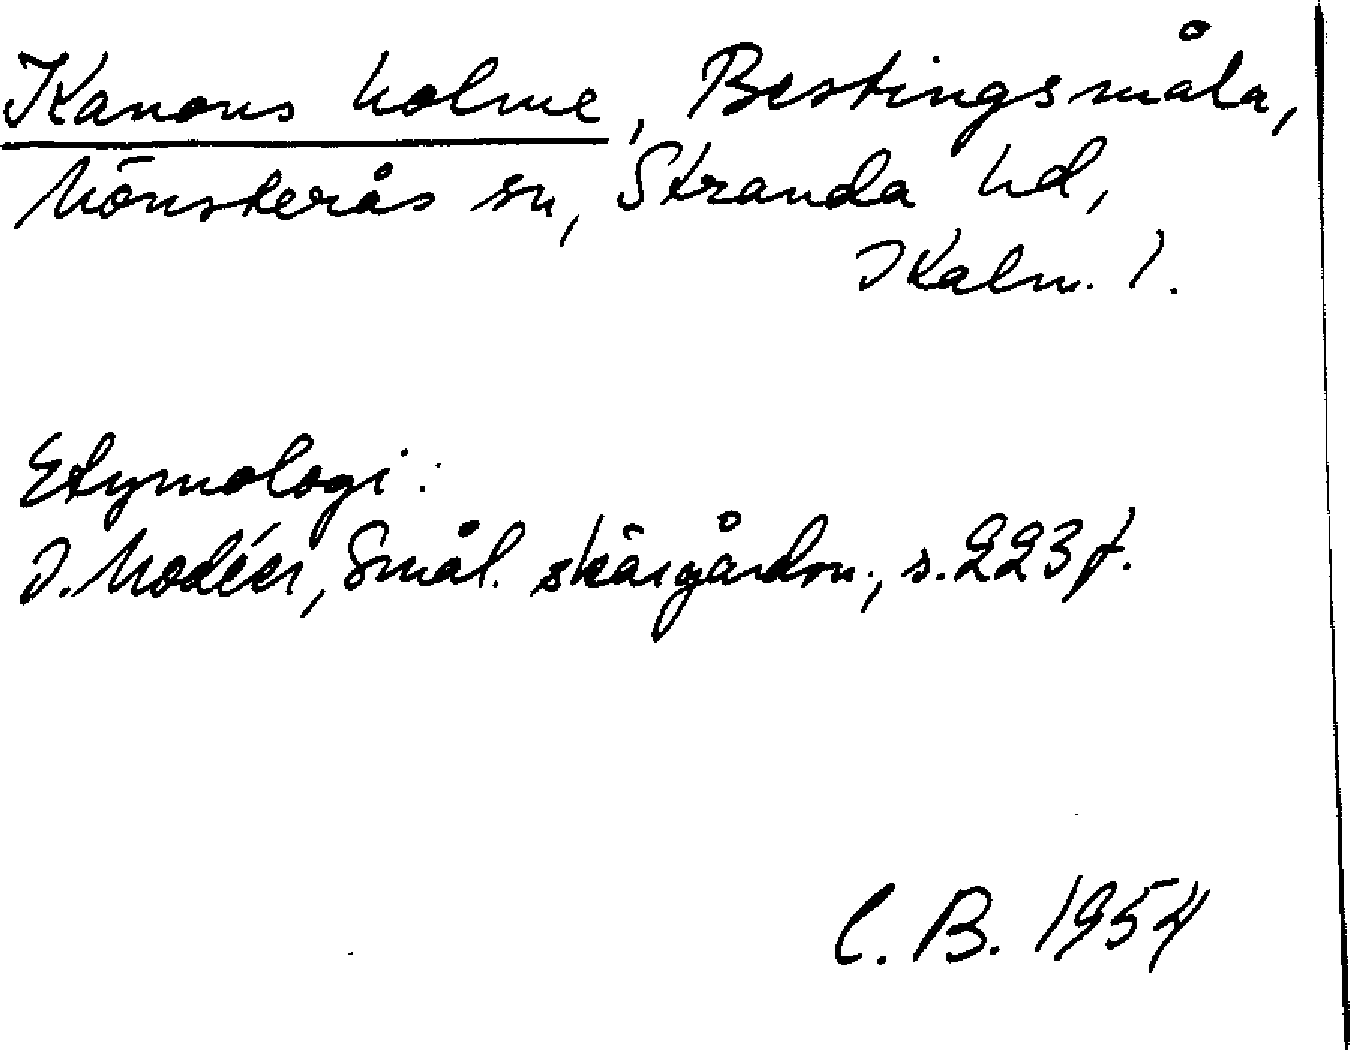 Kanons holme, Bestingsmåla,
Mönsterås sn, Stranda hd,
Kalm. l.
Etymologi:
I. Modéer, Smål. skärgårdsn., s. 223 f.
C. B. 1954